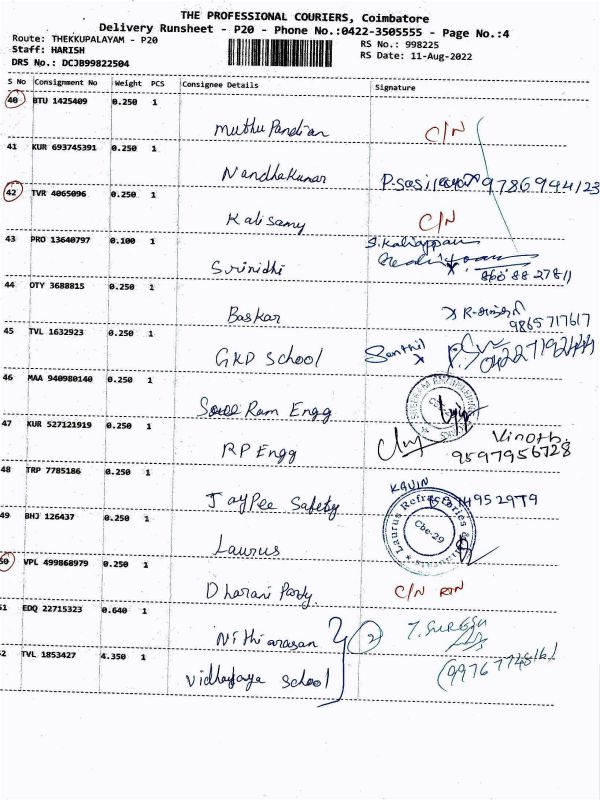 THE PROFESSIONAL COURIERS, Coimbatore
Delivery Runsheet - P20 - Phone No.:0422-3505555 - Page No.:4
Route: THEKKUPALAYAM - P20
RS No.: 998225
Staff: HARISH
RS Date: 11-Aug-2022
DRS No.: DCJB99822504
S No Consignment No Weight PCS Consignee Details Signature
40 BTU 1425409 0.250 1
Muthu Pandian C/N
41 KUR 693745391 0.250 1
Nandhakumar 9786944123
42 TVR 4065096 0.250 1
Kalisamy C/N
43 PRO 13640797 0.100 1
S. Kaliappan
Srinidhi
44 OTY 3688815 0.250 1
Baskar
9865717617
45 TVL 1632923 0.250 1
GKD School Senthil
46 MAA 940980140 0.250 1
Ram Engg
47 KUR 527121919 0.250 1
RP Engg Vinoth.
9597956728
48 TRP 7785186 0.250 1
KAVIN
JayPee Safety
49 BHJ 126437 0.250 1
Laurus Refractories
Cbe-29
Laurus
50 VPL 499868979 0.250 1
Dharani C/N RTN
51 EDQ 22715323 0.640 1
Nithiarasan 2 T. SURESH
52 TVL 1853427 4.350 1
Vidhayaya School